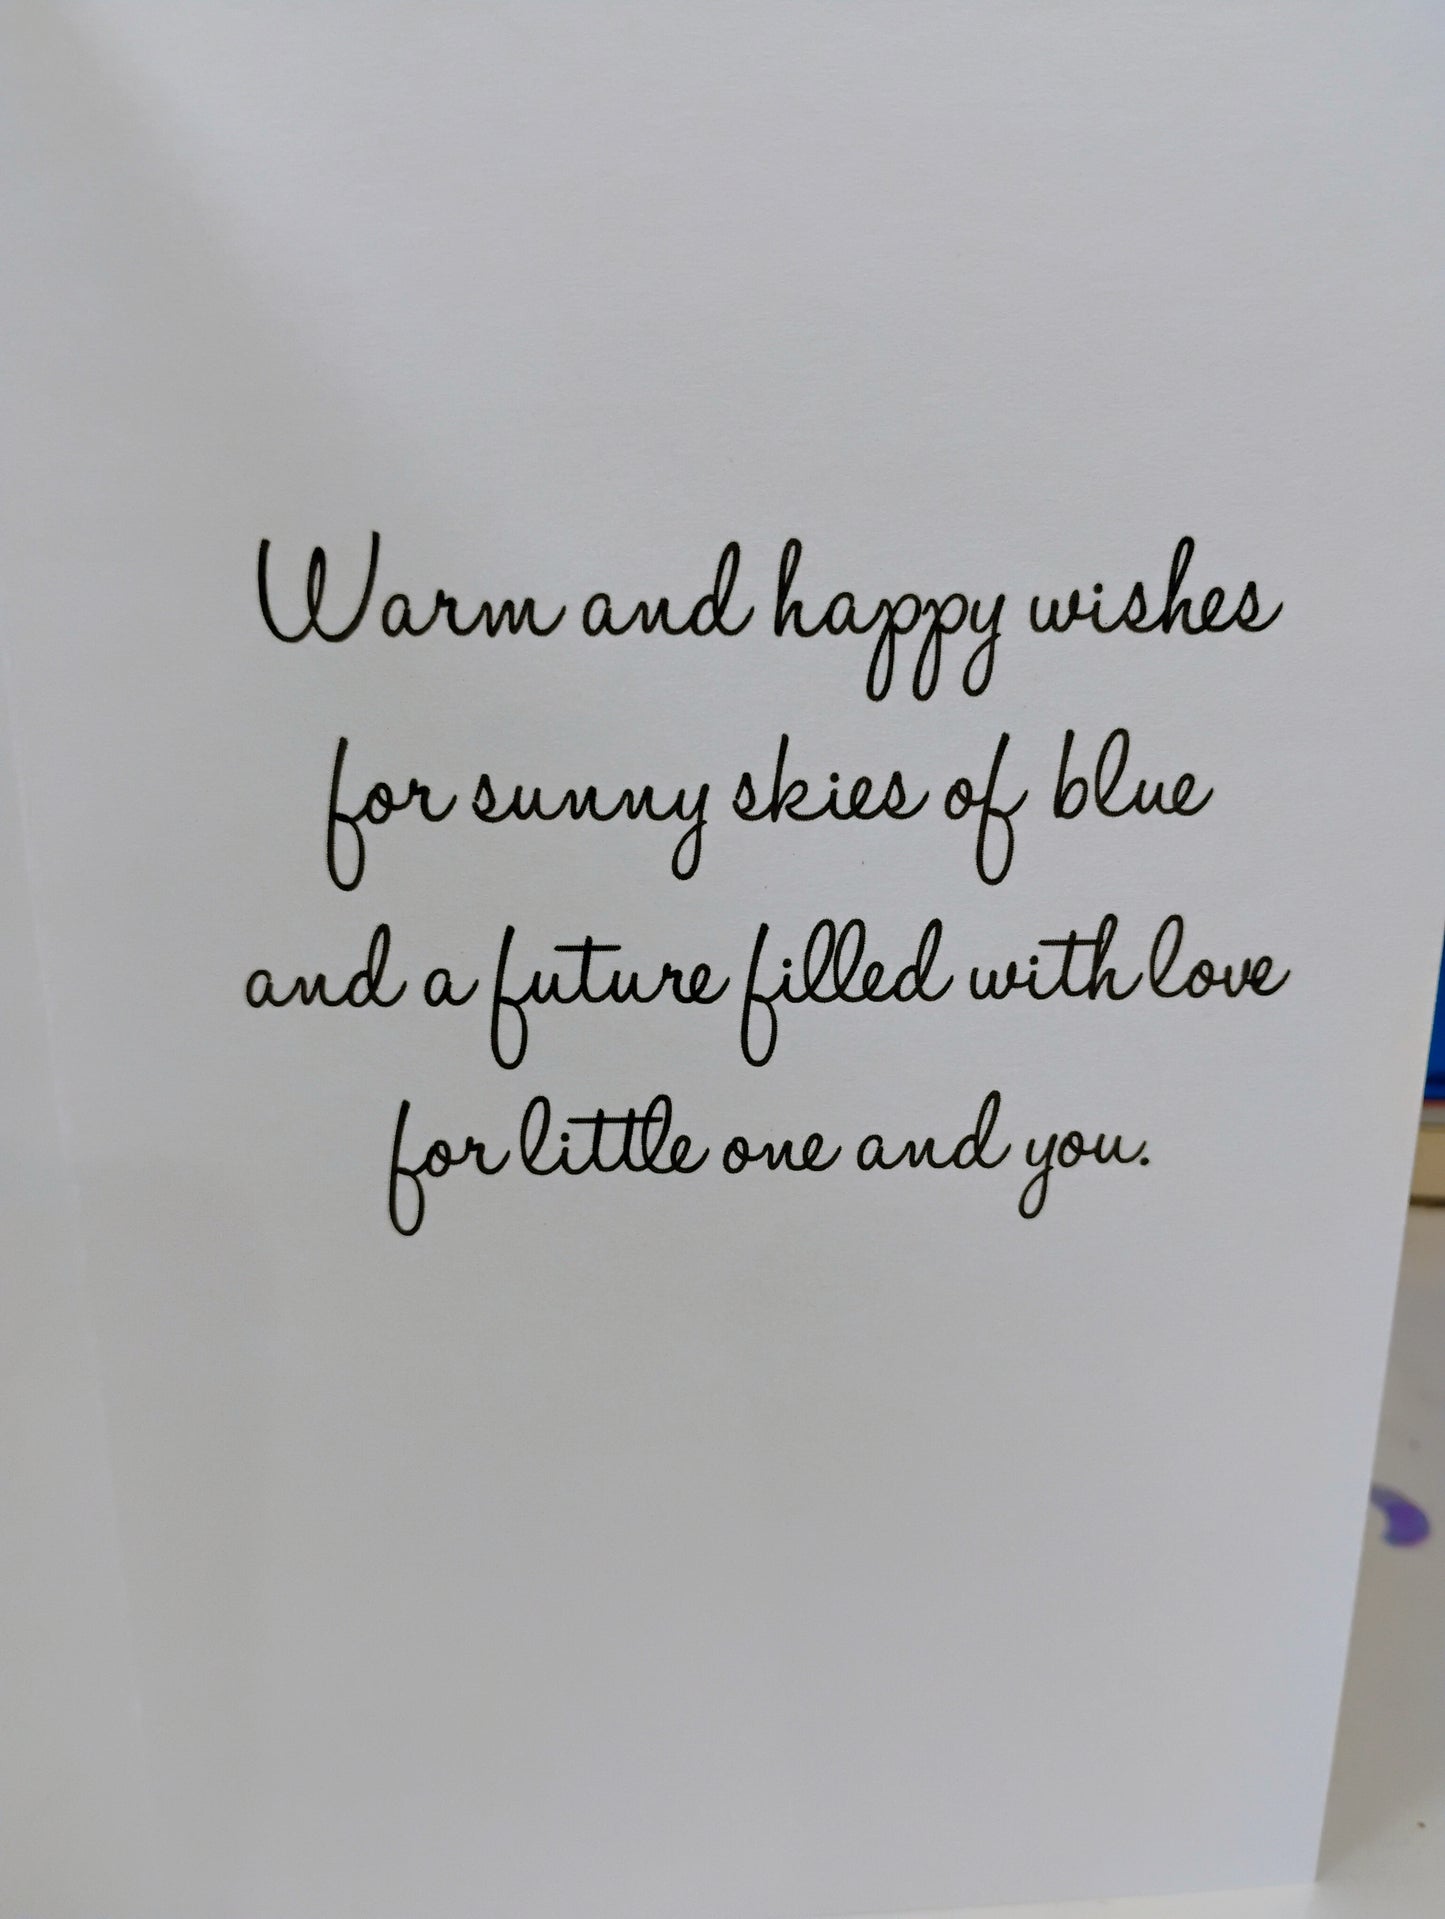 Warm and happy wishes
for sunny skies of blue
and a future filled with love
for little one and you.